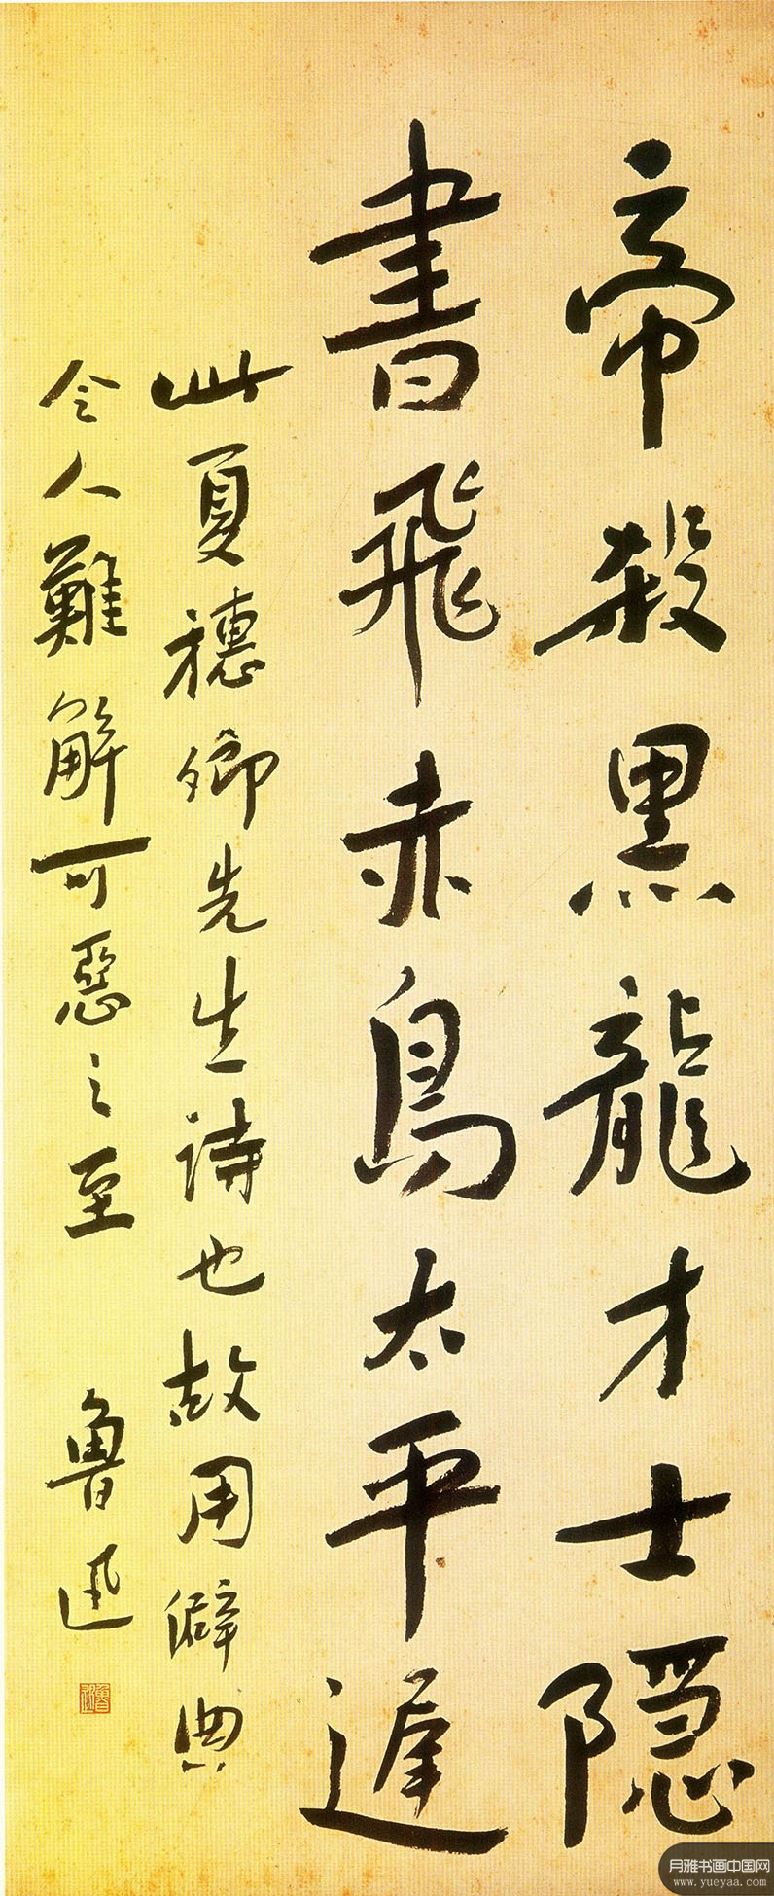 帝殺黑龍才士隱
書飛赤鳥太平遲
此夏穗卿先生詩也故用僻典
令人難解可惡之至
魯迅
魯迅
月雅书画中国网
www.yueyaa.com